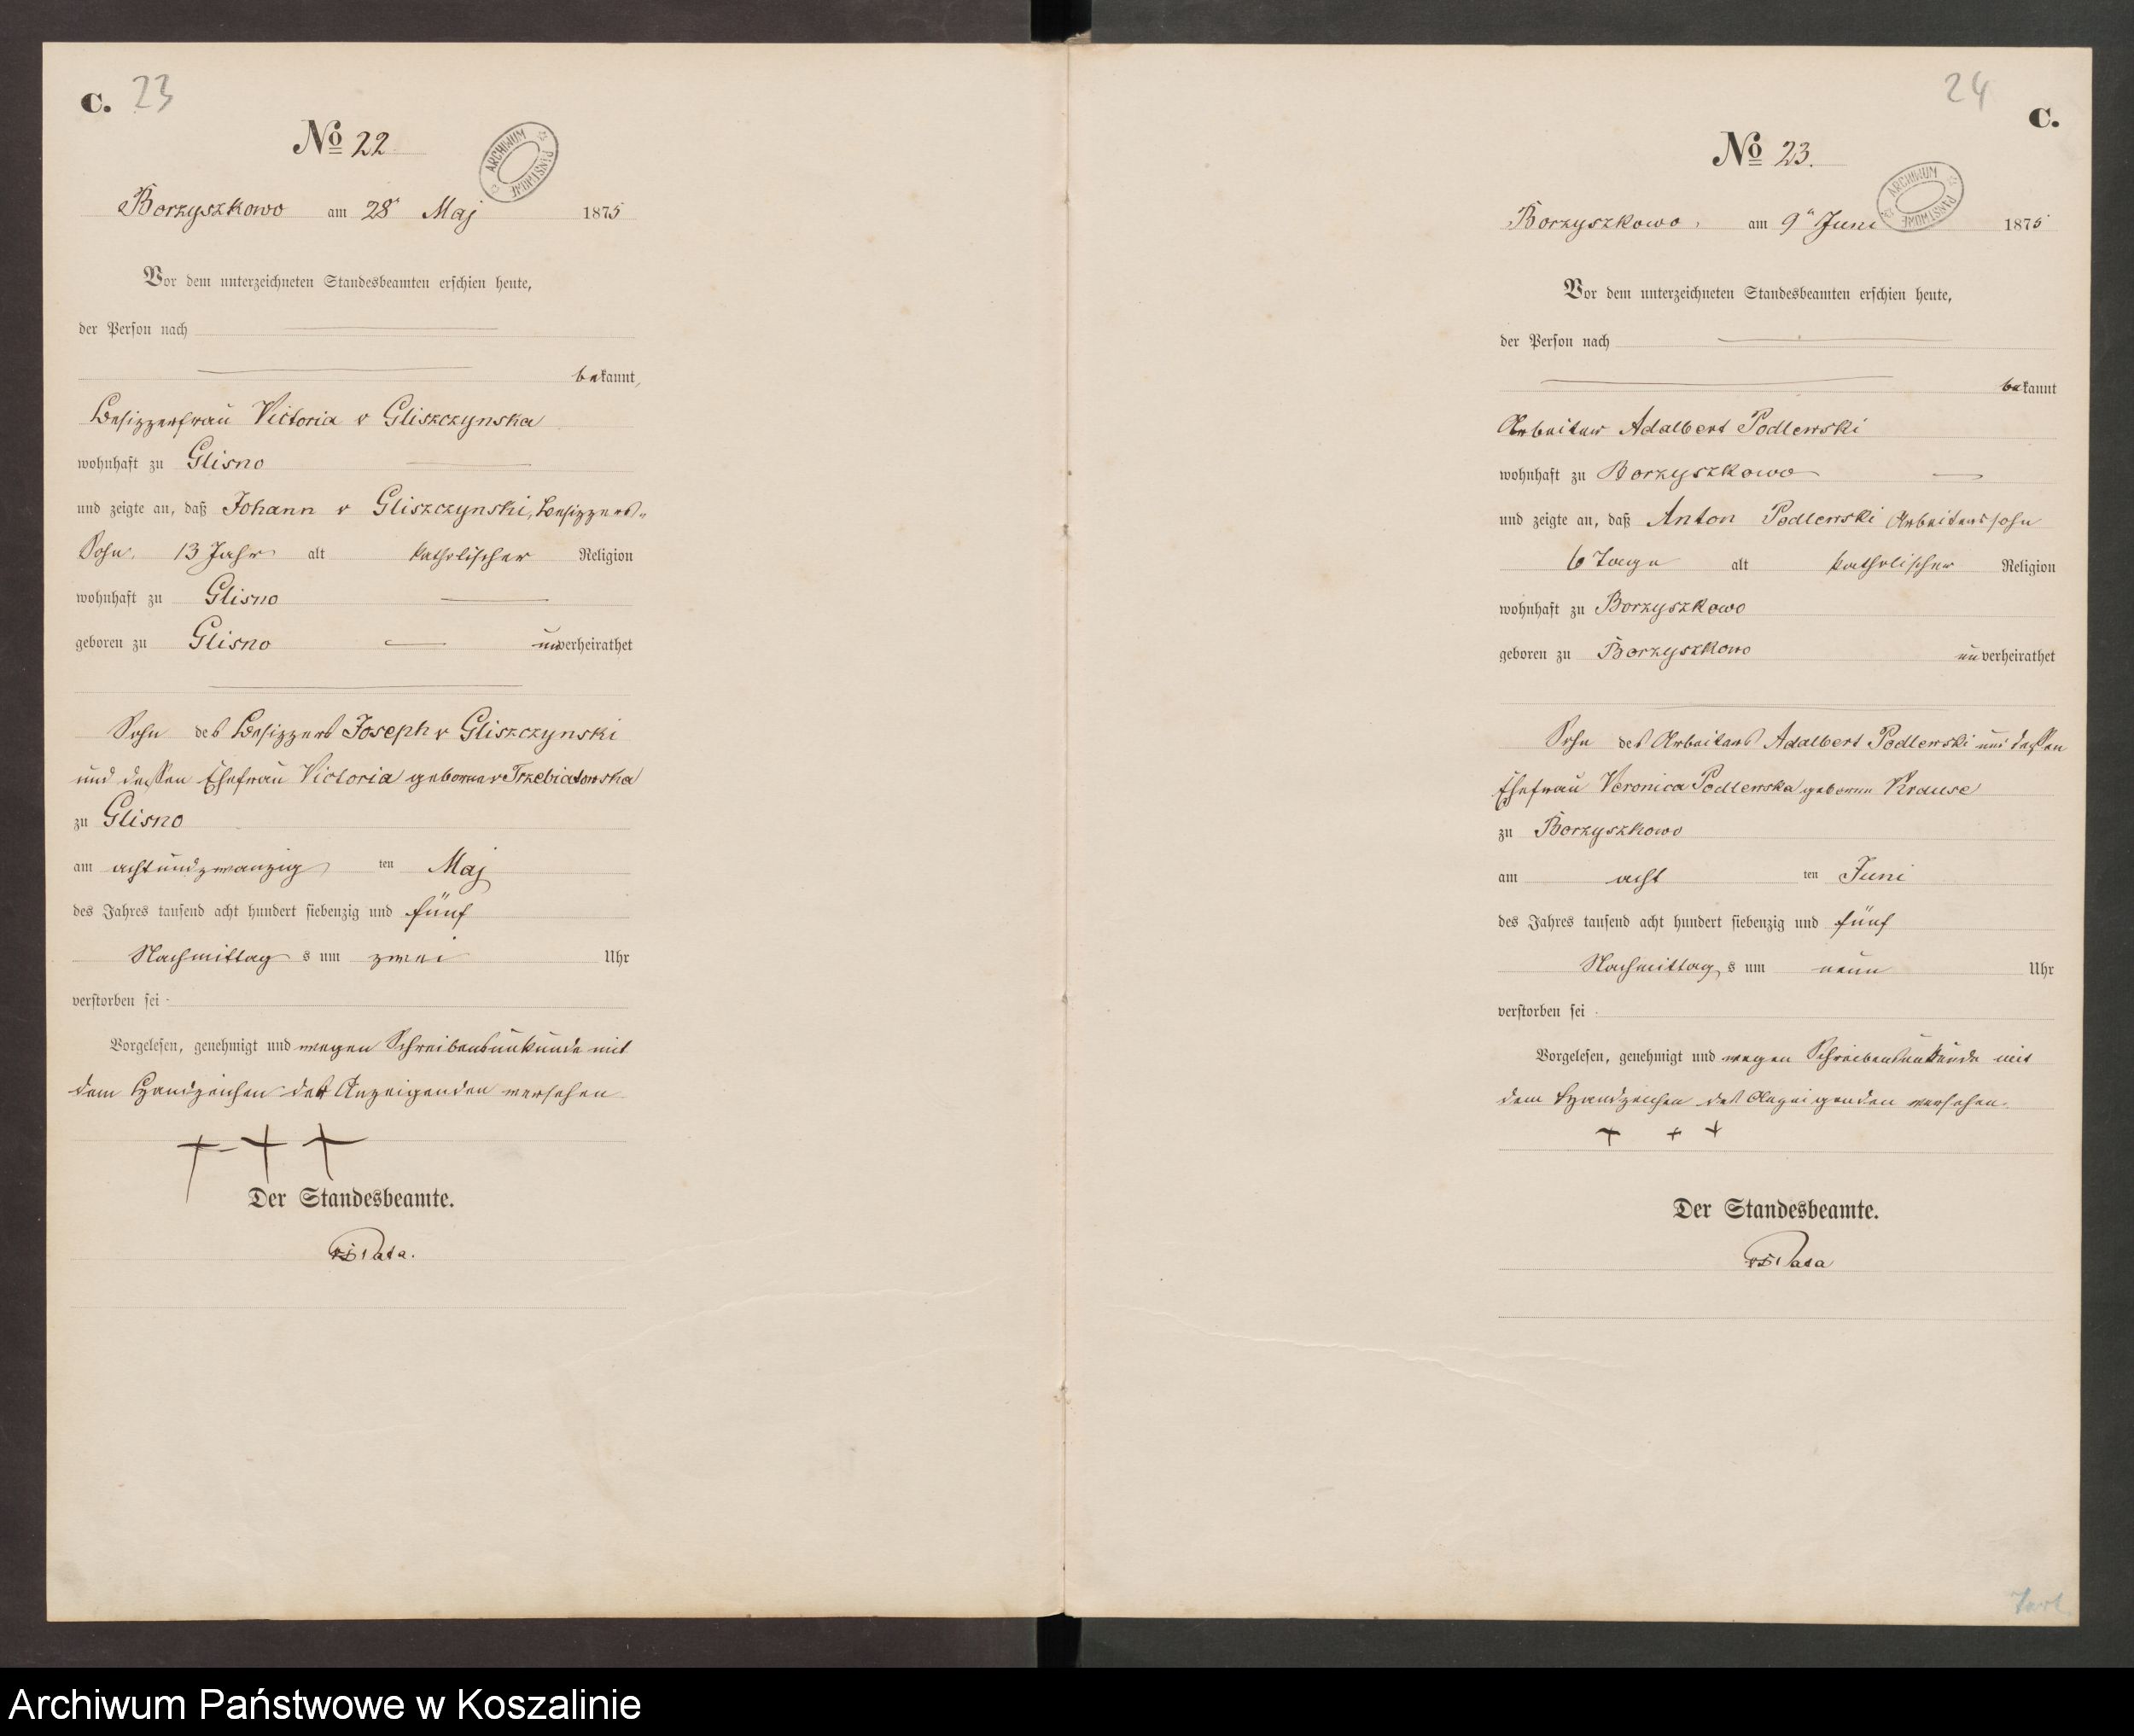 C. 23
No 22
ARCHIWUM PAŃSTWOWE
Borzyszkowo am 28 Maj 1875
Vor dem unterzeichneten Standesbeamten erschien heute,
der Person nach
bekannt,
Besizzerfrau Victoria v Gliszczynska
wohnhaft zu Glisno
und zeigte an, daß Johann v Gliszczynski, Besizzers-
Sohn, 13 Jahr alt katholischer Religion
wohnhaft zu Glisno
geboren zu Glisno unverheirathet
Sohn des Besizzers Joseph v Gliszczynski
und dessen Ehefrau Victoria geborne v Trzebiatowska
zu Glisno
am achtundzwanzig ten Maj
des Jahres tausend acht hundert siebenzig und fünf
Nachmittag s um zwei Uhr
verstorben sei
Vorgelesen, genehmigt und wegen Schreibensunkunde mit
dem Handzeichen des Anzeigenden versehen
+ + +
Der Standesbeamte.
24
C.
No 23.
ARCHIWUM PAŃSTWOWE
Borzyszkowo, am 9 Juni 1875
Vor dem unterzeichneten Standesbeamten erschien heute,
der Person nach
bekannt
Arbeiter Adalbert Podlewski
wohnhaft zu Borzyszkowo
und zeigte an, daß Anton Podlewski Arbeiterssohn
6 Tage alt katholischer Religion
wohnhaft zu Borzyszkowo
geboren zu Borzyszkowo unverheirathet
Sohn des Arbeiters Adalbert Podlewski und dessen
Ehefrau Veronica Podlewska geborne Krause
zu Borzyszkowo
am acht ten Juni
des Jahres tausend acht hundert siebenzig und fünf
Nachmittag s um neun Uhr
verstorben sei
Vorgelesen, genehmigt und wegen Schreibensunkunde mit
dem Handzeichen des Anzeigenden versehen.
+ + +
Der Standesbeamte.
Archiwum Państwowe w Koszalinie